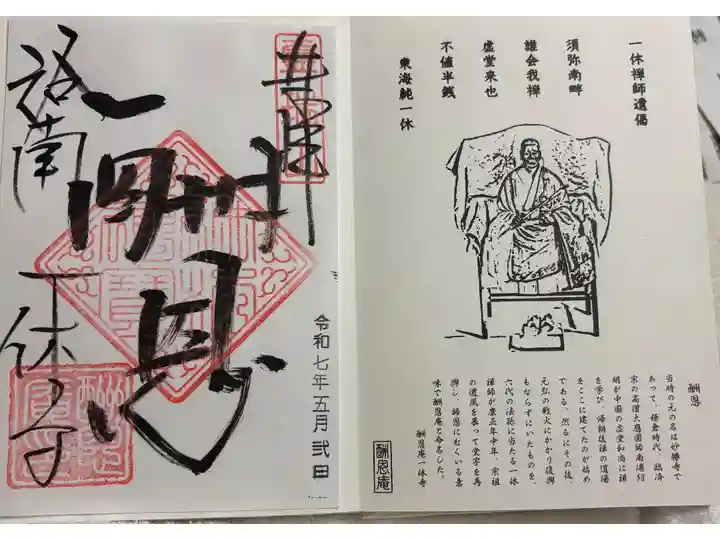 一休禅師遺偈
須弥南畔
誰会我禅
虚堂来也
不値半銭
東海純一休
酬恩
当時の元の名は妙勝寺で
あって、鎌倉時代、臨済
宗の高僧大應国師南浦紹
明が中国の虚堂和尚に禅
を学び、帰朝後禅の道場
をここに建てたのが始め
である。然るにその後、
元弘の戦火にかかり復興
もならずにいたものを、
六代の法孫に当たる一休
禅師が康正年中年、宗祖
の遺風を慕って堂宇を再
興し、師恩にむくいる意
味で酬恩庵と命名した。
酬恩庵一休寺
酬恩庵
酬恩
令和七年五月弐日
洛南
一休寺